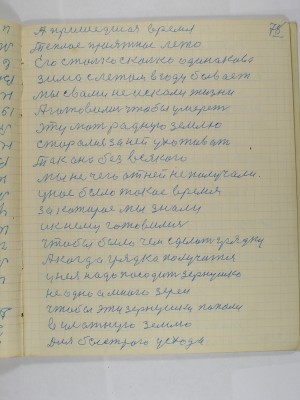 78
А пришедшая время
Теплое приятное лето
Его столко сколко одинаково
зима с летом в году бывает
Мы с вами не искали жизни
А готовилис чтобы умереть
эту мат радную землю
старалис за ней ухаживат
Так она без всякого
мы не чего от ней не получали
у нас было такое время
за которае мы знали
и к нему готовилис
чтобы было чем сделат грядку
А когда грядка получится
у нея надо посадит зернушко
не одно а много зерен
чтобы эти зернушки попали
в землю
для быстрого усхода